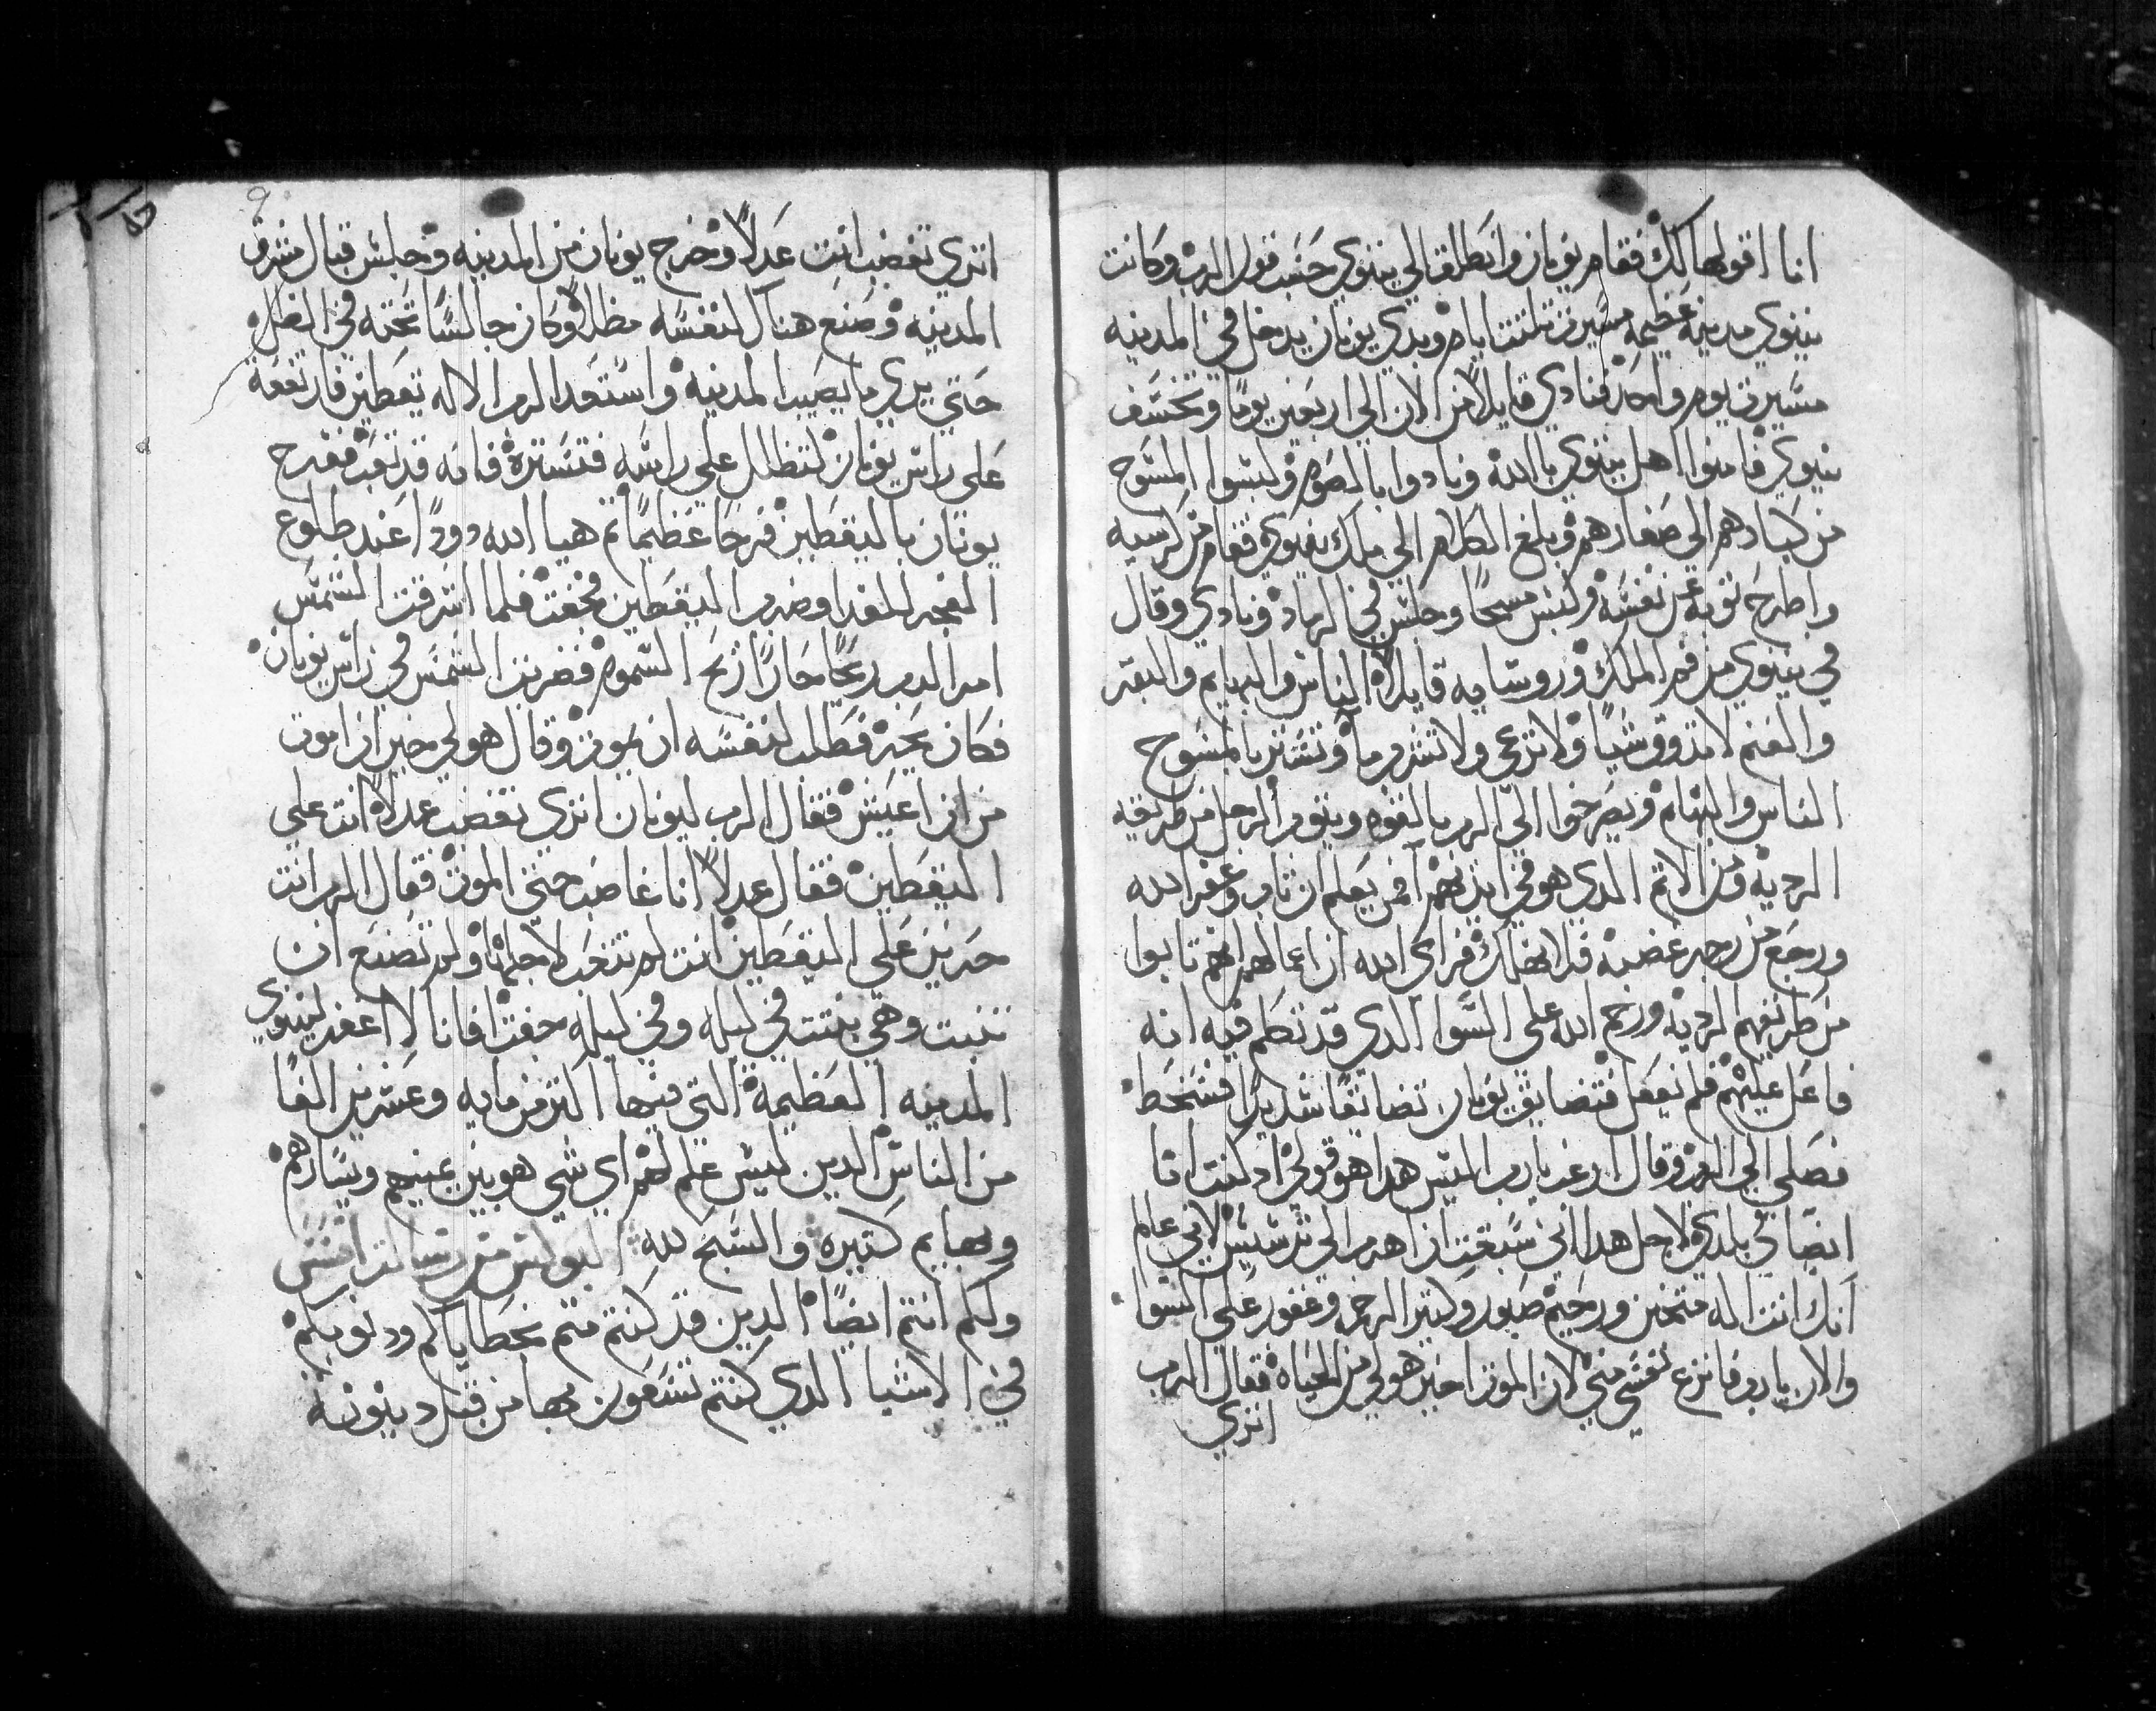 انا اقولها لك فقام يونان وانطلق الي نينوي حسب قول الرب وكانت
نينوي مدينه عظيمه مسيرة تلتت ايام وبدي يونان يدخل في المدينه
مسيرة يوم واحد فنادي قايلا من الان الي اربعين يوما وتخسف
نينوي فامنوا اهل نينوي بالله ونادوا بالصوم ولبسوا المسوح
من كبارهم الي صغارهم وبلغ الكلام الي ملك نينوي فقام من كرسيه
واطرح توبه عن نفسه ولبس مسحا وجلس في الرماد ونادي وقال
في نينوي من فم الملك وروسايه قايلا الناس والبهايم والبقر
والغنم لا تدوق شيا ولا ترعي ولا تشرب ما وتستتر بالمسوح
الناس والبهايم ويصرخوا الي الرب بالقوه ويتوب الرجل من طريقه
الرديه ومن الاتم الدي هو في ايديهم فمن يعلم ان تاب وغفر الله
ورجع من رجز غضبه فلا نهلك فراي الله ان اعمالهم انهم تابوا
من طريقهم الرديه ورحم الله علي السوا الدي قد تكلم فيه انه
فاعل عليهم فلم يفعل فتضايق يونان تضايقا شديدا فسخط
فصلي الي الرب وقال ارغب يارب اليس هدا هو قولي اد كنت انا
ايضا في بلدي ولاجل هدا اني سبقت ان اهرب الي ترسيس لاني عالم
انك انت اله متحنن ورحيم صبور وكتير الرحمه وغفور علي السوا
والان يارب فانزع نفسي مني لان الموت اخير هو لي من الحياه فقال الرب
اتري
اتري تغضب انت عدلا وخرج يونان من المدينه وجلس قبال مشرق
المدينه وصنع هناك لنفسه مظلا وكان جالسا تحته في الظل
حتي يري ما يصيب المدينه واستعد الرب الاله يقطين فارتفعة
علي راس يونان لتظلل علي راسه فتستره فانه قد تعب ففرح
يونان باليقطين فرحا عظيما تم هيا الله دودا عند طلوع
الفجر للغد اوضرب اليقطين فجفت فلما اشرقت الشمس
امر الرب ريحا حارا ريح السموم فضربت الشمس في راس يونان
فكان بحيره فطلب لنفسه ان يموت وقال هو لي خير ان اموت
من ان اعيش فقال الرب ليونان اتري تغضب عدلا انت علي
اليقطين فقال عدلا انا غاضب حتي الموت فقال الرب انت
حزنت علي اليقطين انت لم تتعب لاجلها ولم تصنع ان
تنبت وهي نبتت في ليله وفي ليله جفت افانا لا اغفر لنينوي
المدينه العظيمة التي فيها اكتر من مايه وعشرين الفا
من الناس الدين ليس علم لهم اي شي هو بين يمينهم ويسارهم
وبهايم كتيره والسبح لله البولس من رسالت افسس
ولكم انتم ايضا الدين قد كنتم متم بخطاياكم ودنوبكم
في الاشيا الدي كنتم تسعون بها من قبل دينونة